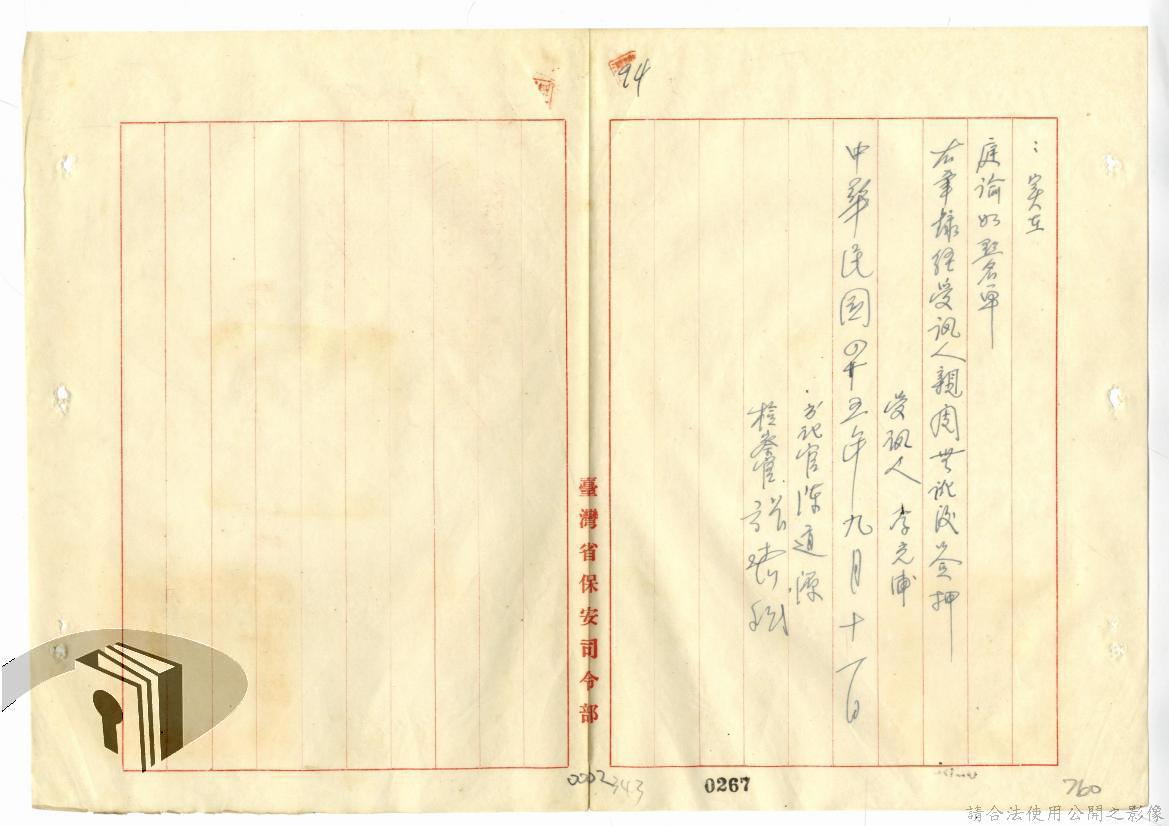 94
：實在
庭諭如點名單
右筆錄經受訊人親閱無訛後簽押
受訊人 李克浦
中華民國四十五年九月十一日
書記官 陳道源
檢察官
臺灣省保安司令部
0002343
0267
760
請合法使用公開之影像